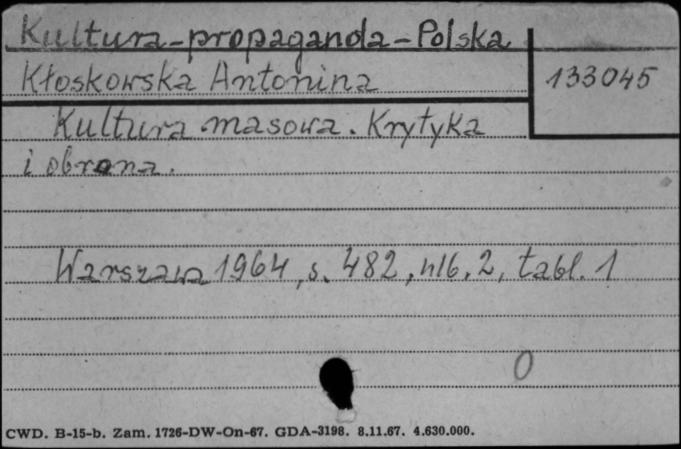 Kultura-propaganda-Polska
Kłoskowska Antonina
133045
Kultura masowa. Krytyka
i obrona.
Warszawa 1964, s. 482, nlb. 2, tabl. 1
0
CWD. B-15-b. Zam. 1726-DW-On-67. GDA-3198. 8.11.67. 4.630.000.